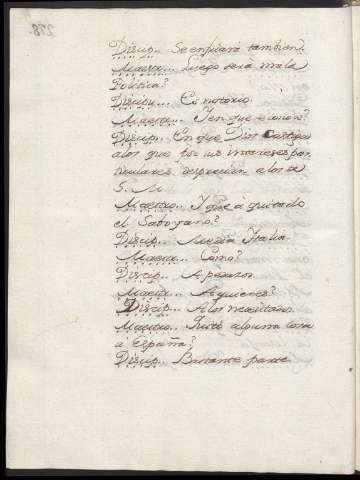 Discip... Se enfriará tambien.
Maestr... Luego será mala
Politica?
Discipu... Es notorio
Maestr... Y en que
Discip... En que Dios Castiga
a los que por sus intereses par-
ticulares desprecian a los de
S. M.
Maestro... Y que a quitado
el Saboyano?
Discip... Media Italia
Maestr... Como?
Discip... A pedazos
Maestr... A quienes?
Discip... A los
Maestro... Quitó alguna cosa
a España?
Discip... Bastante parte